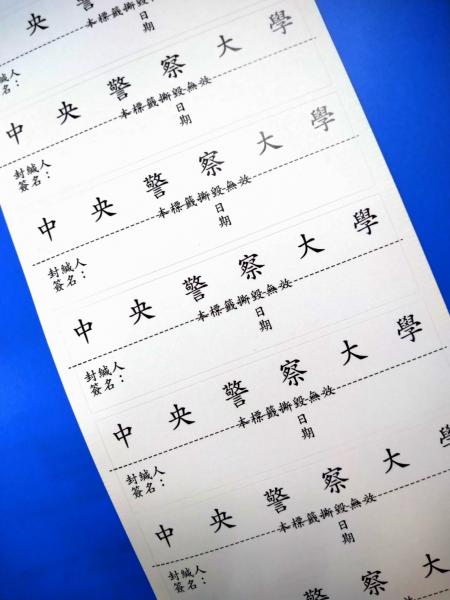 央 警 察
本標籤撕毀無效
封緘人
簽名：
日
期
中央警察大學
本標籤撕毀無效
封緘人
簽名：
日
期
中央警察大學
本標籤撕毀無效
封緘人
簽名：
日
期
中央警察大學
本標籤撕毀無效
封緘人
簽名：
日
期
中央警察大學
本標籤撕毀無效
封緘人
簽名：
日
期
中央警察大學
本標籤撕毀無效
封緘人
簽名：
日
期
察大學